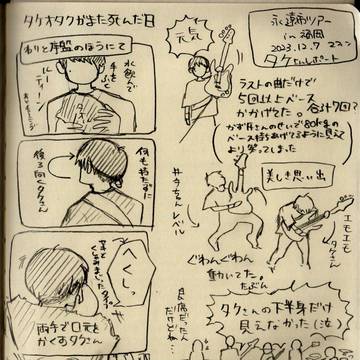 タケオタケがまた死んだ日
永遠市ツアー
in 福岡
2023.12.7
タケさんレポート
わりと序盤のほうにて
水飲んで
手をふく
ルーティーン
元気
ラストの曲だけで
5回以上ベース
かかげてた。
合計7回?
かずださんのせいで80kgの
ベース持ちあげてるように見えて
より笑ってしまった
何も持たずに
後ろ向くタケさん
美しき思い出
レベル
エモエモ
タケさん
ぐわんぐわん
動いてた。
たぶん
へくしっ
両手で口元を
かくすタケさん
タケさんの下半身だけ
見えなかった(泣)